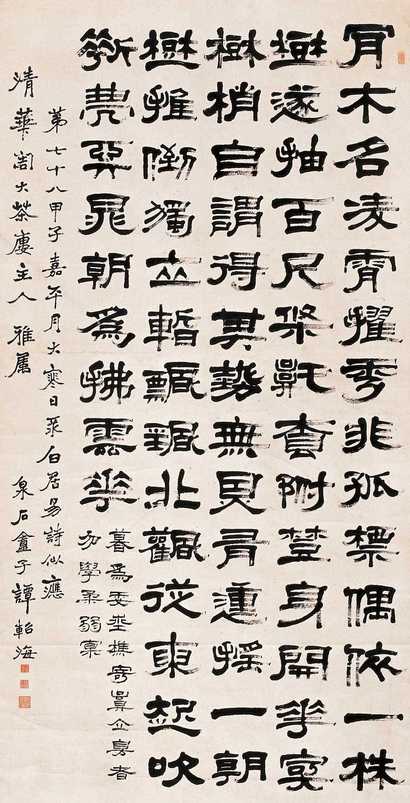 有木名凌霄擢秀非孤標偶依一株
樹遂抽百尺條託根附身開花寄
樹梢自謂得其勢無因有動搖一朝
樹摧倒獨立暫飄颻從東起吹
朝為拂雲花
暮為委地樵寄言立身者
勿學柔弱苗
第七十八甲子嘉平月大寒日彔白居易詩似應
清華大茶廔主人雅屬
泉石盦子譚海